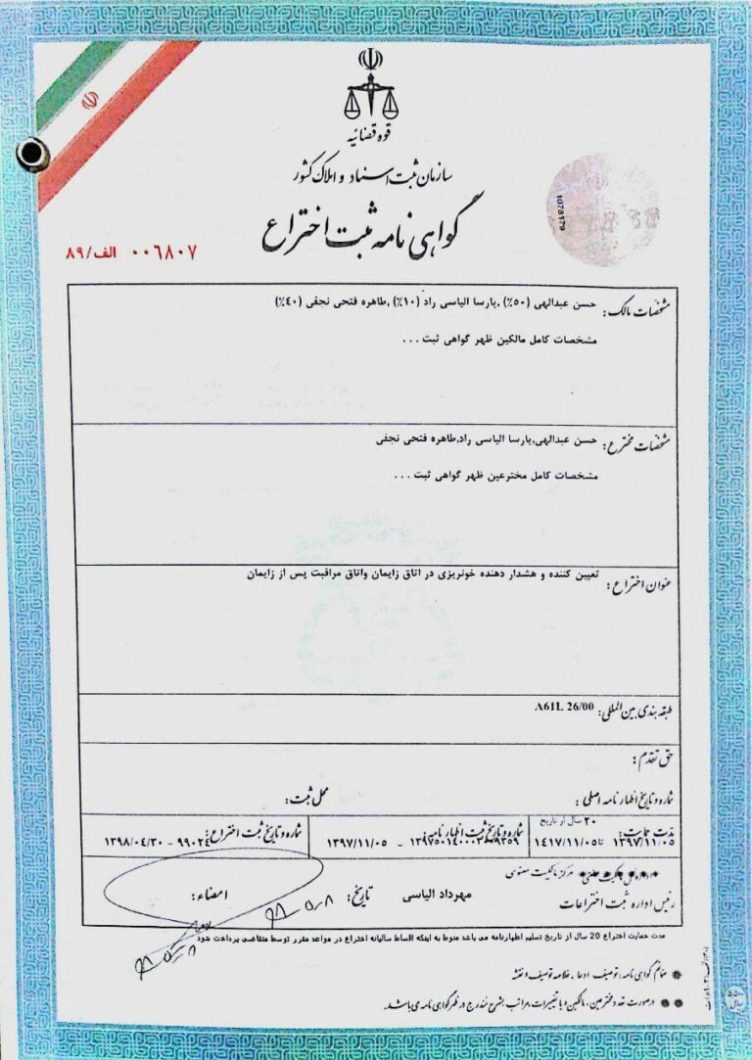 قوه قضائیه
سازمان ثبت اسناد و املاک کشور
گواهی نامه ثبت اختراع
1073179
۰۰۶۸۰۷ الف/۸۹
مشخصات مالک: حسن عبدالهی (۵۰٪) ,پارسا الیاسی راد (۱۰٪) ,طاهره فتحی نجفی (۴۰٪)
مشخصات کامل مالکین ظهر گواهی ثبت ...
مشخصات مخترع: حسن عبدالهی,پارسا الیاسی راد,طاهره فتحی نجفی
مشخصات کامل مخترعین ظهر گواهی ثبت ...
عنوان اختراع: تعیین کننده و هشدار دهنده خونریزی در اتاق زایمان واتاق مراقبت پس از زایمان
طبقه بندی بین المللی: A61L 26/00
حق تقدم:
شماره و تاریخ اظهارنامه اصلی: محل ثبت:
مدت حمایت: ۲۰ سال از تاریخ ۱۳۹۷/۱۱/۰۵ تا ۱۴۱۷/۱۱/۰۵
شماره و تاریخ ثبت اظهارنامه: ۱۳۹۷۵۰۱۴۰۰۰۳۰۰۹۳۵۹ - ۱۳۹۷/۱۱/۰۵
شماره و تاریخ ثبت اختراع: ۹۹۰۲۴ - ۱۳۹۸/۰۴/۳۰
مرکز مالکیت معنوی
رئیس اداره ثبت اختراعات مهرداد الیاسی تاریخ: امضاء:
مدت حمایت اختراع 20 سال از تاریخ تسلیم اظهارنامه می باشد منوط به اینکه اقساط سالیانه اختراع در مواعد مقرر توسط متقاضی پرداخت شود
ضمائم گواهی نامه: توصیف، ادعا، خلاصه توصیف و نقشه
درصورت تعدد مخترعین، مالکین و یا تغییرات، مراتب بشرح مندرج در ظهر گواهی نامه می باشد.